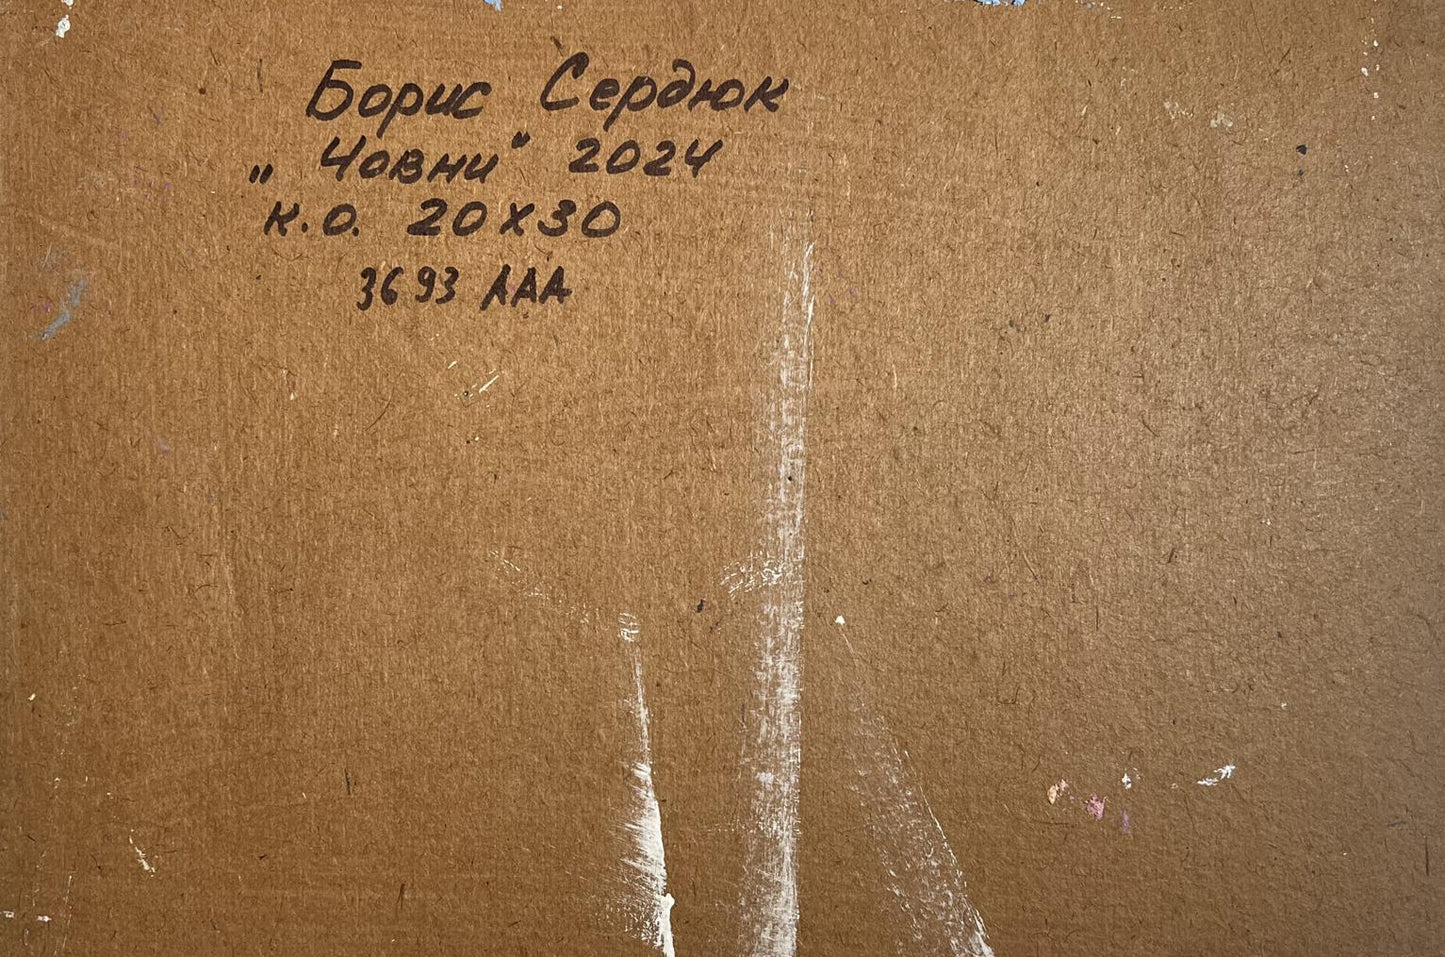 Борис Сердюк
„Човни" 2024
к.о. 20х30
3693 ААА